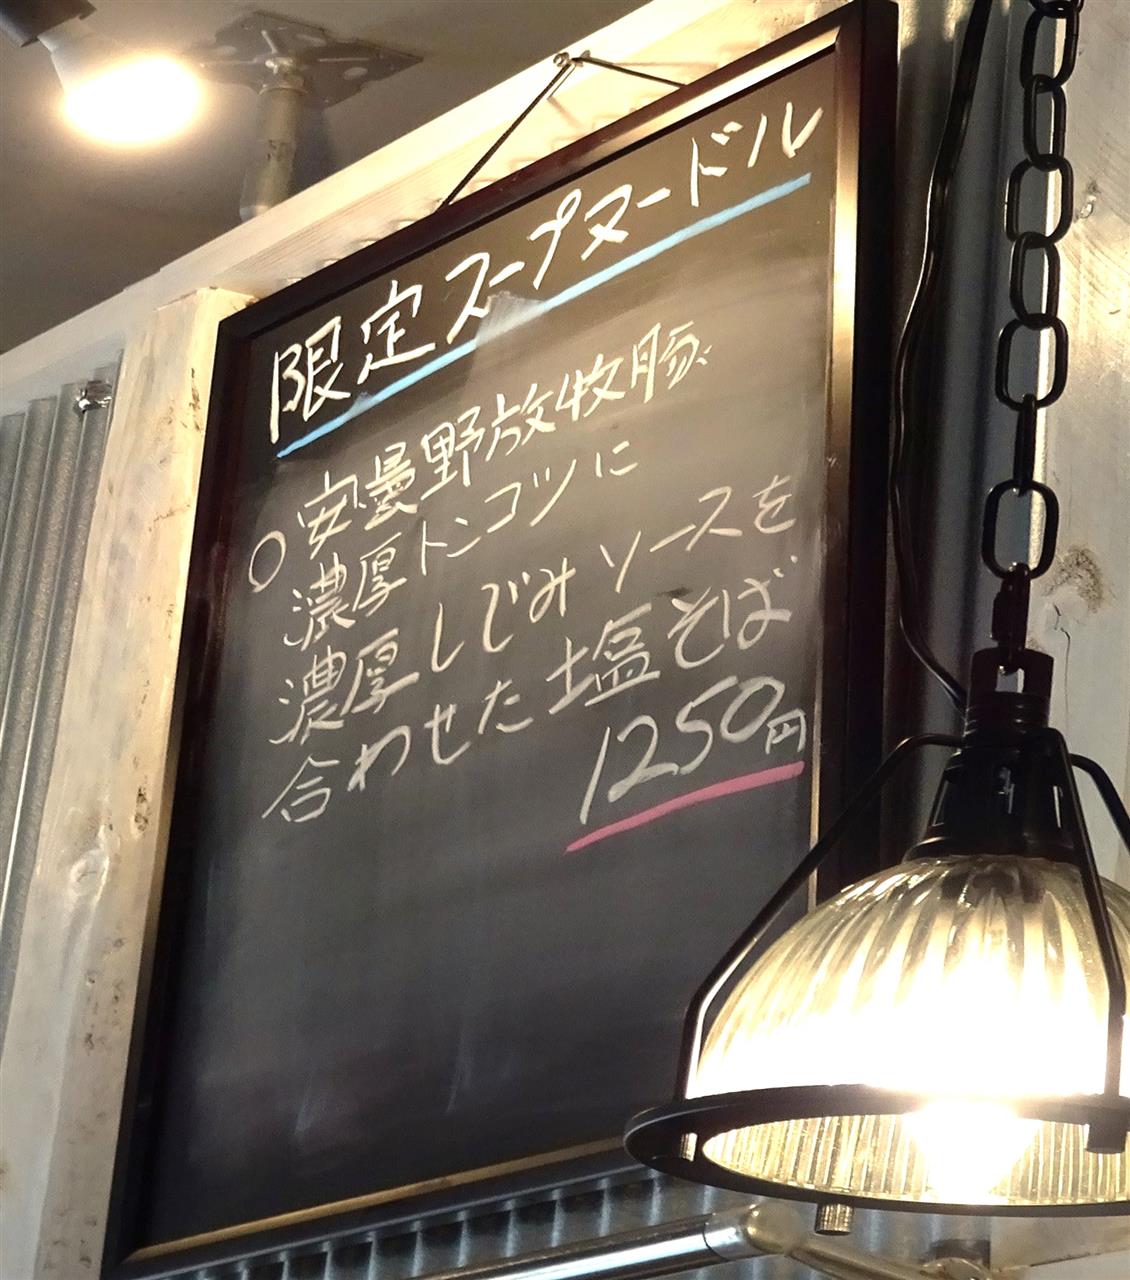 限定スープヌードル
○安曇野放牧豚
濃厚トンコツに
濃厚しじみソースを
合わせた塩そば
1250円